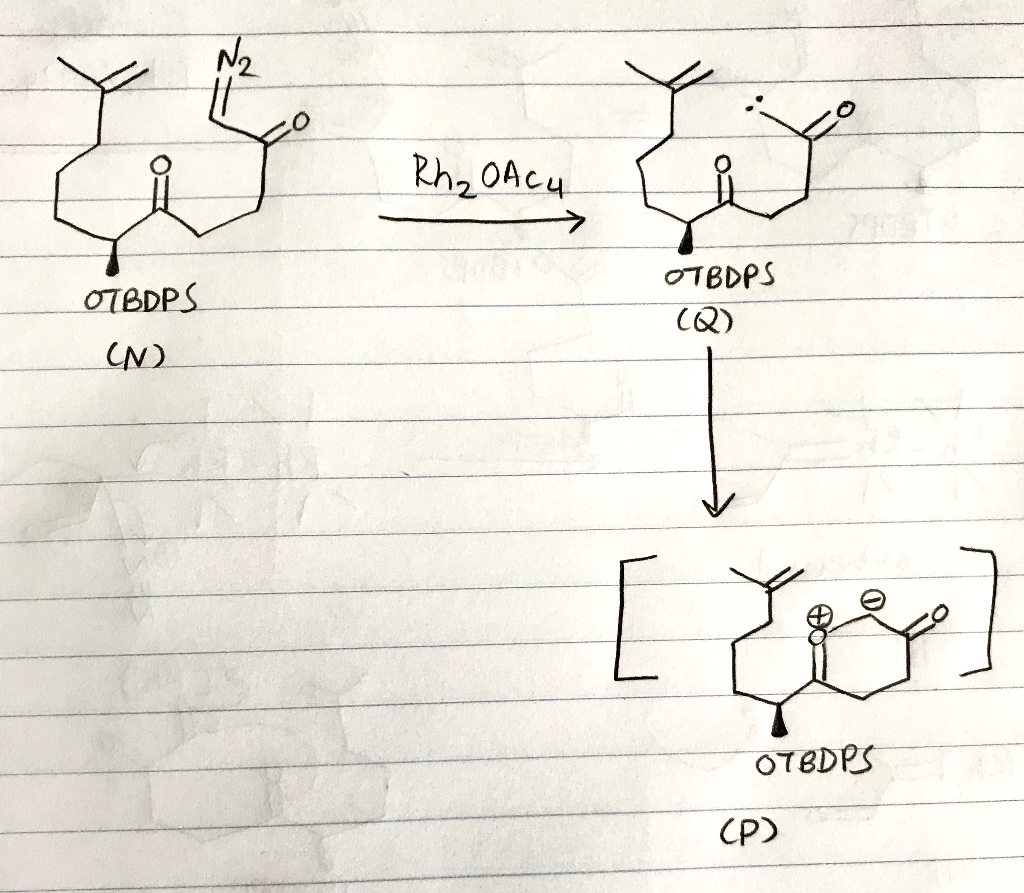 N2
O
O
OTBDPS
(N)
Rh2OAc4
O
O
OTBDPS
(Q)
⊕
⊖
O
O
OTBDPS
(P)